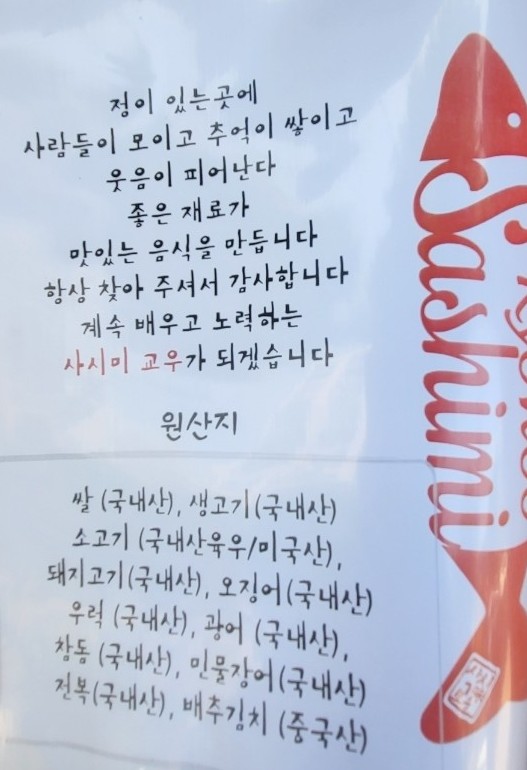 정이 있는곳에
사람들이 모이고 추억이 쌓이고
웃음이 피어난다
좋은 재료가
맛있는 음식을 만듭니다
항상 찾아 주셔서 감사합니다
계속 배우고 노력하는
사시미 교우가 되겠습니다
원산지
쌀 (국내산), 생고기(국내산)
소고기 (국내산육우/미국산),
돼지고기(국내산), 오징어(국내산)
우럭 (국내산), 광어 (국내산),
참돔 (국내산), 민물장어(국내산)
전복(국내산), 배추김치 (중국산)
Sashimi